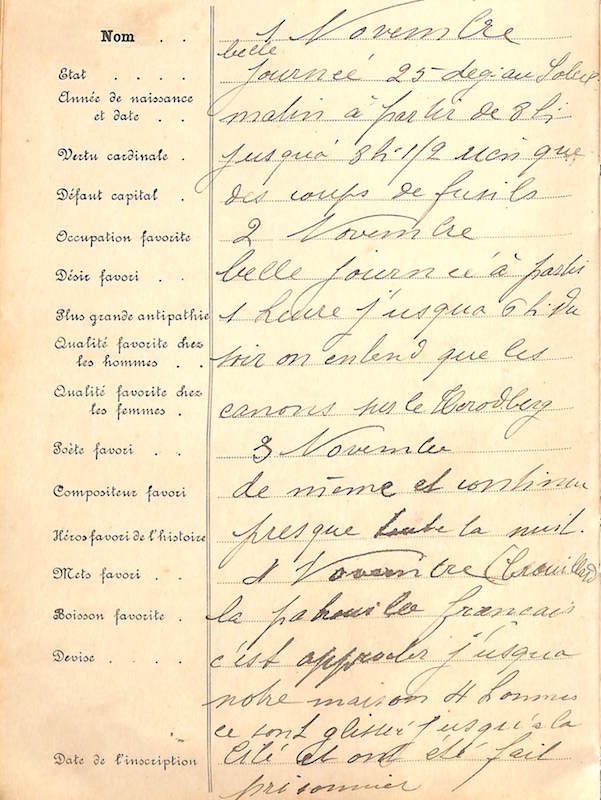 Nom . . 1 Novembre
belle
Etat . . . . Journeé 25 deg. au Soleil
Année de naissance
et date . . matin à partir de 8 h
Vertu cardinale . jusqua 8 h 1/2 rien que
Défaut capital . des coups de fusils
Occupation favorite 2 Novembre
Désir favori . . belle journeé à partir
Plus grande antipathie 1 heure j'usqua 6 h du
Qualité favorite chez
les hommes . . soir on entend que les
Qualité favorite chez
les femmes . canons sur le
Poëte favori . . 3 Novembre
Compositeur favori de même et continu
Héros favori de l'histoire presque toute la nuit.
Mets favori . . 4 Novembre (Brouillard)
Boisson favorite . la patrouille francais
Devise . . . . c'est approcher j'usqua
notre maison 4 hommes
ce sont glisseé j'usqu'a la
Date de l'inscription Cité et ont été fait
prisonnier